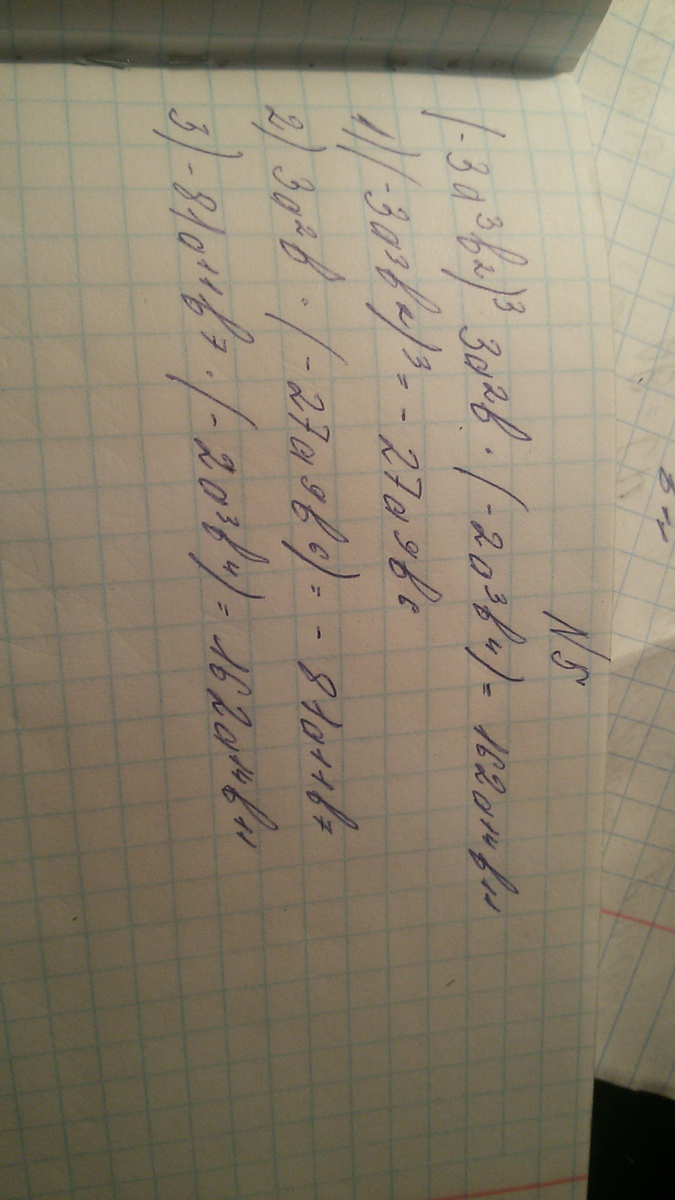 N5
(-3a³b²)³ 3a²b · (-2a³b⁴) = 162a¹⁴b¹¹
1) (-3a³b²)³ = -27a⁹b⁶
2) 3a²b · (-27a⁹b⁶) = -81a¹¹b⁷
3) -81a¹¹b⁷ · (-2a³b⁴) = 162a¹⁴b¹¹